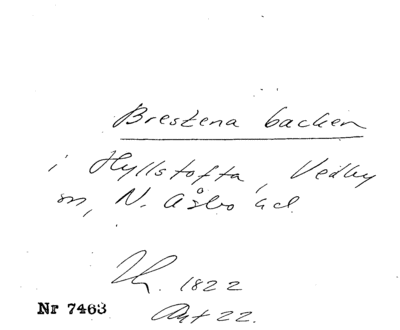 Brestena backen
i Hyllstofta, Vedby
sn, N. Åsbo hd.
1822
Nr 7463
22.